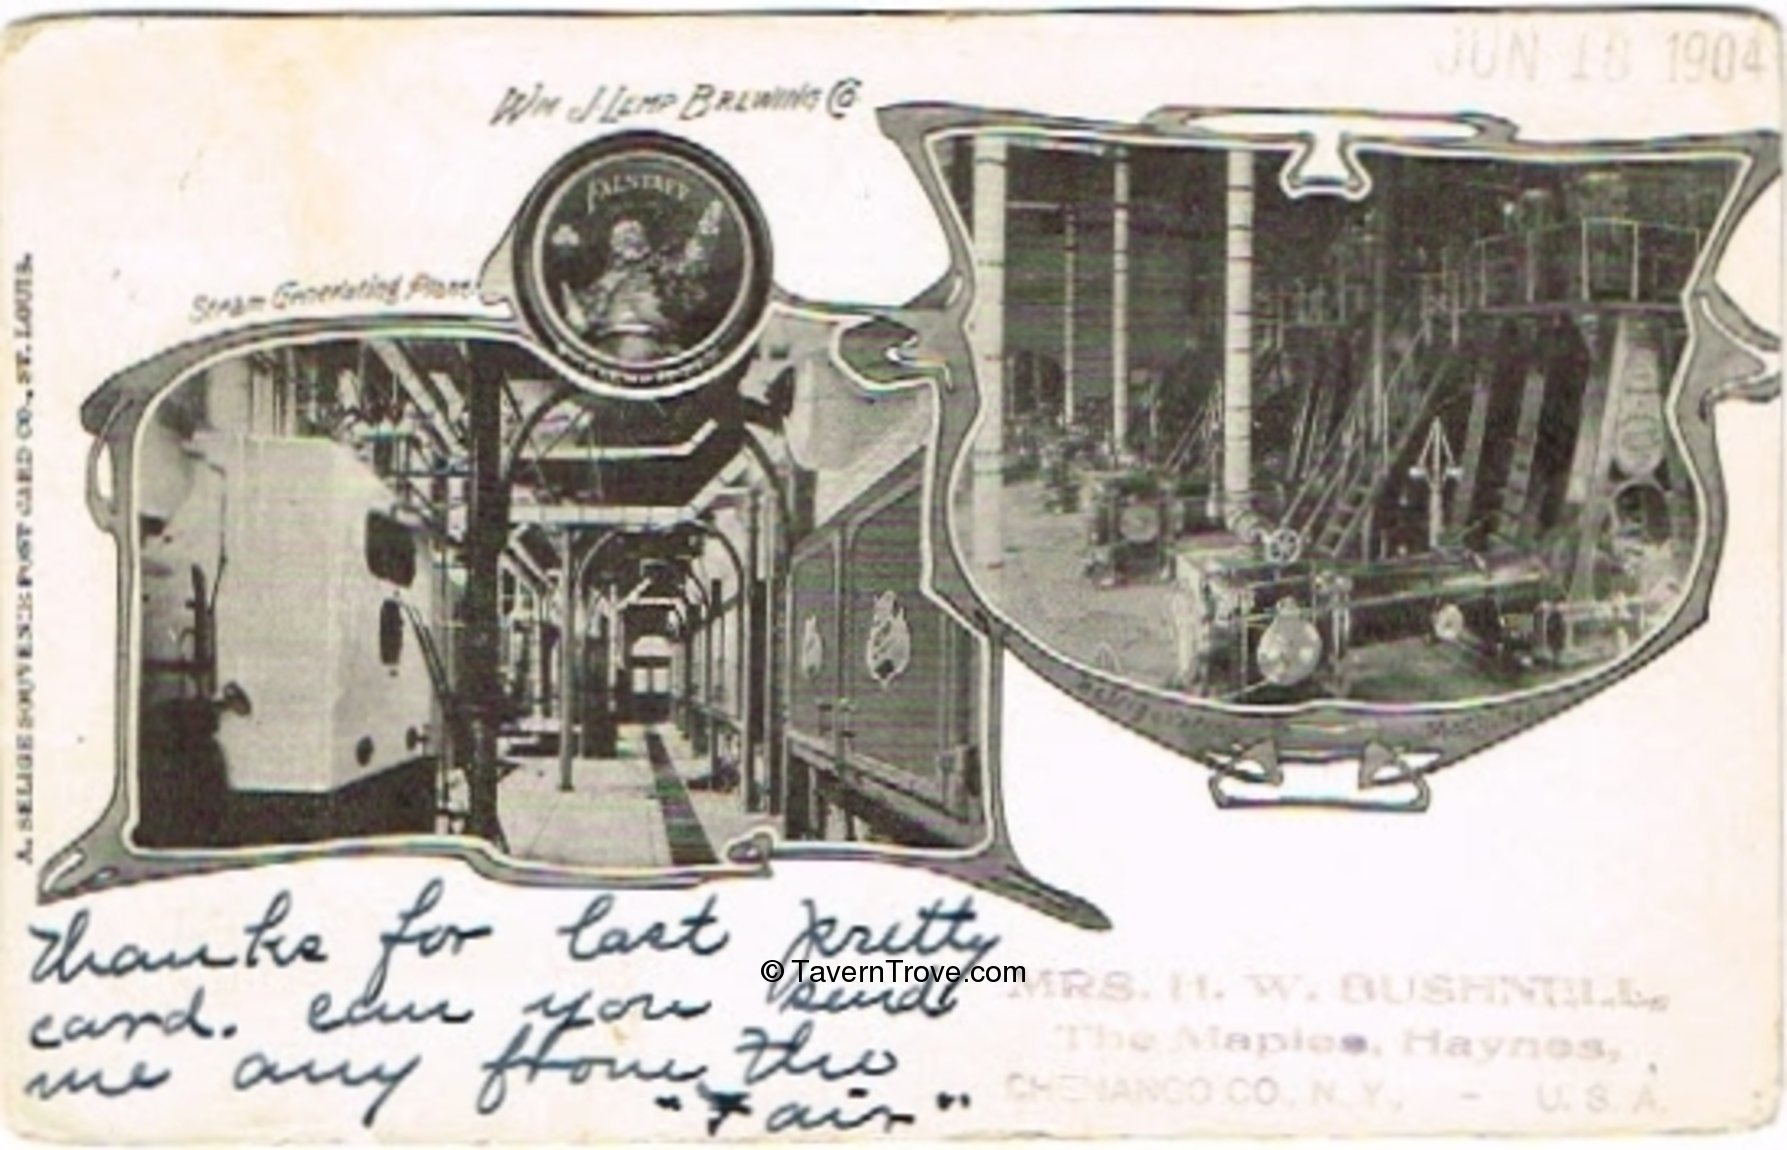 JUN 18 1904
Wm J. Lemp Brewing Co
FALSTAFF
Steam Generating Plant
A. SELIGE SOUVENIR POST CARD CO., ST. LOUIS.
Thanks for last pretty
card. can you send
me any from the
"Fair"
© TavernTrove.com
MRS. H. W. BUSHNELL,
The Maples, Haynes,
CHENANGO CO. N. Y., - U. S. A.